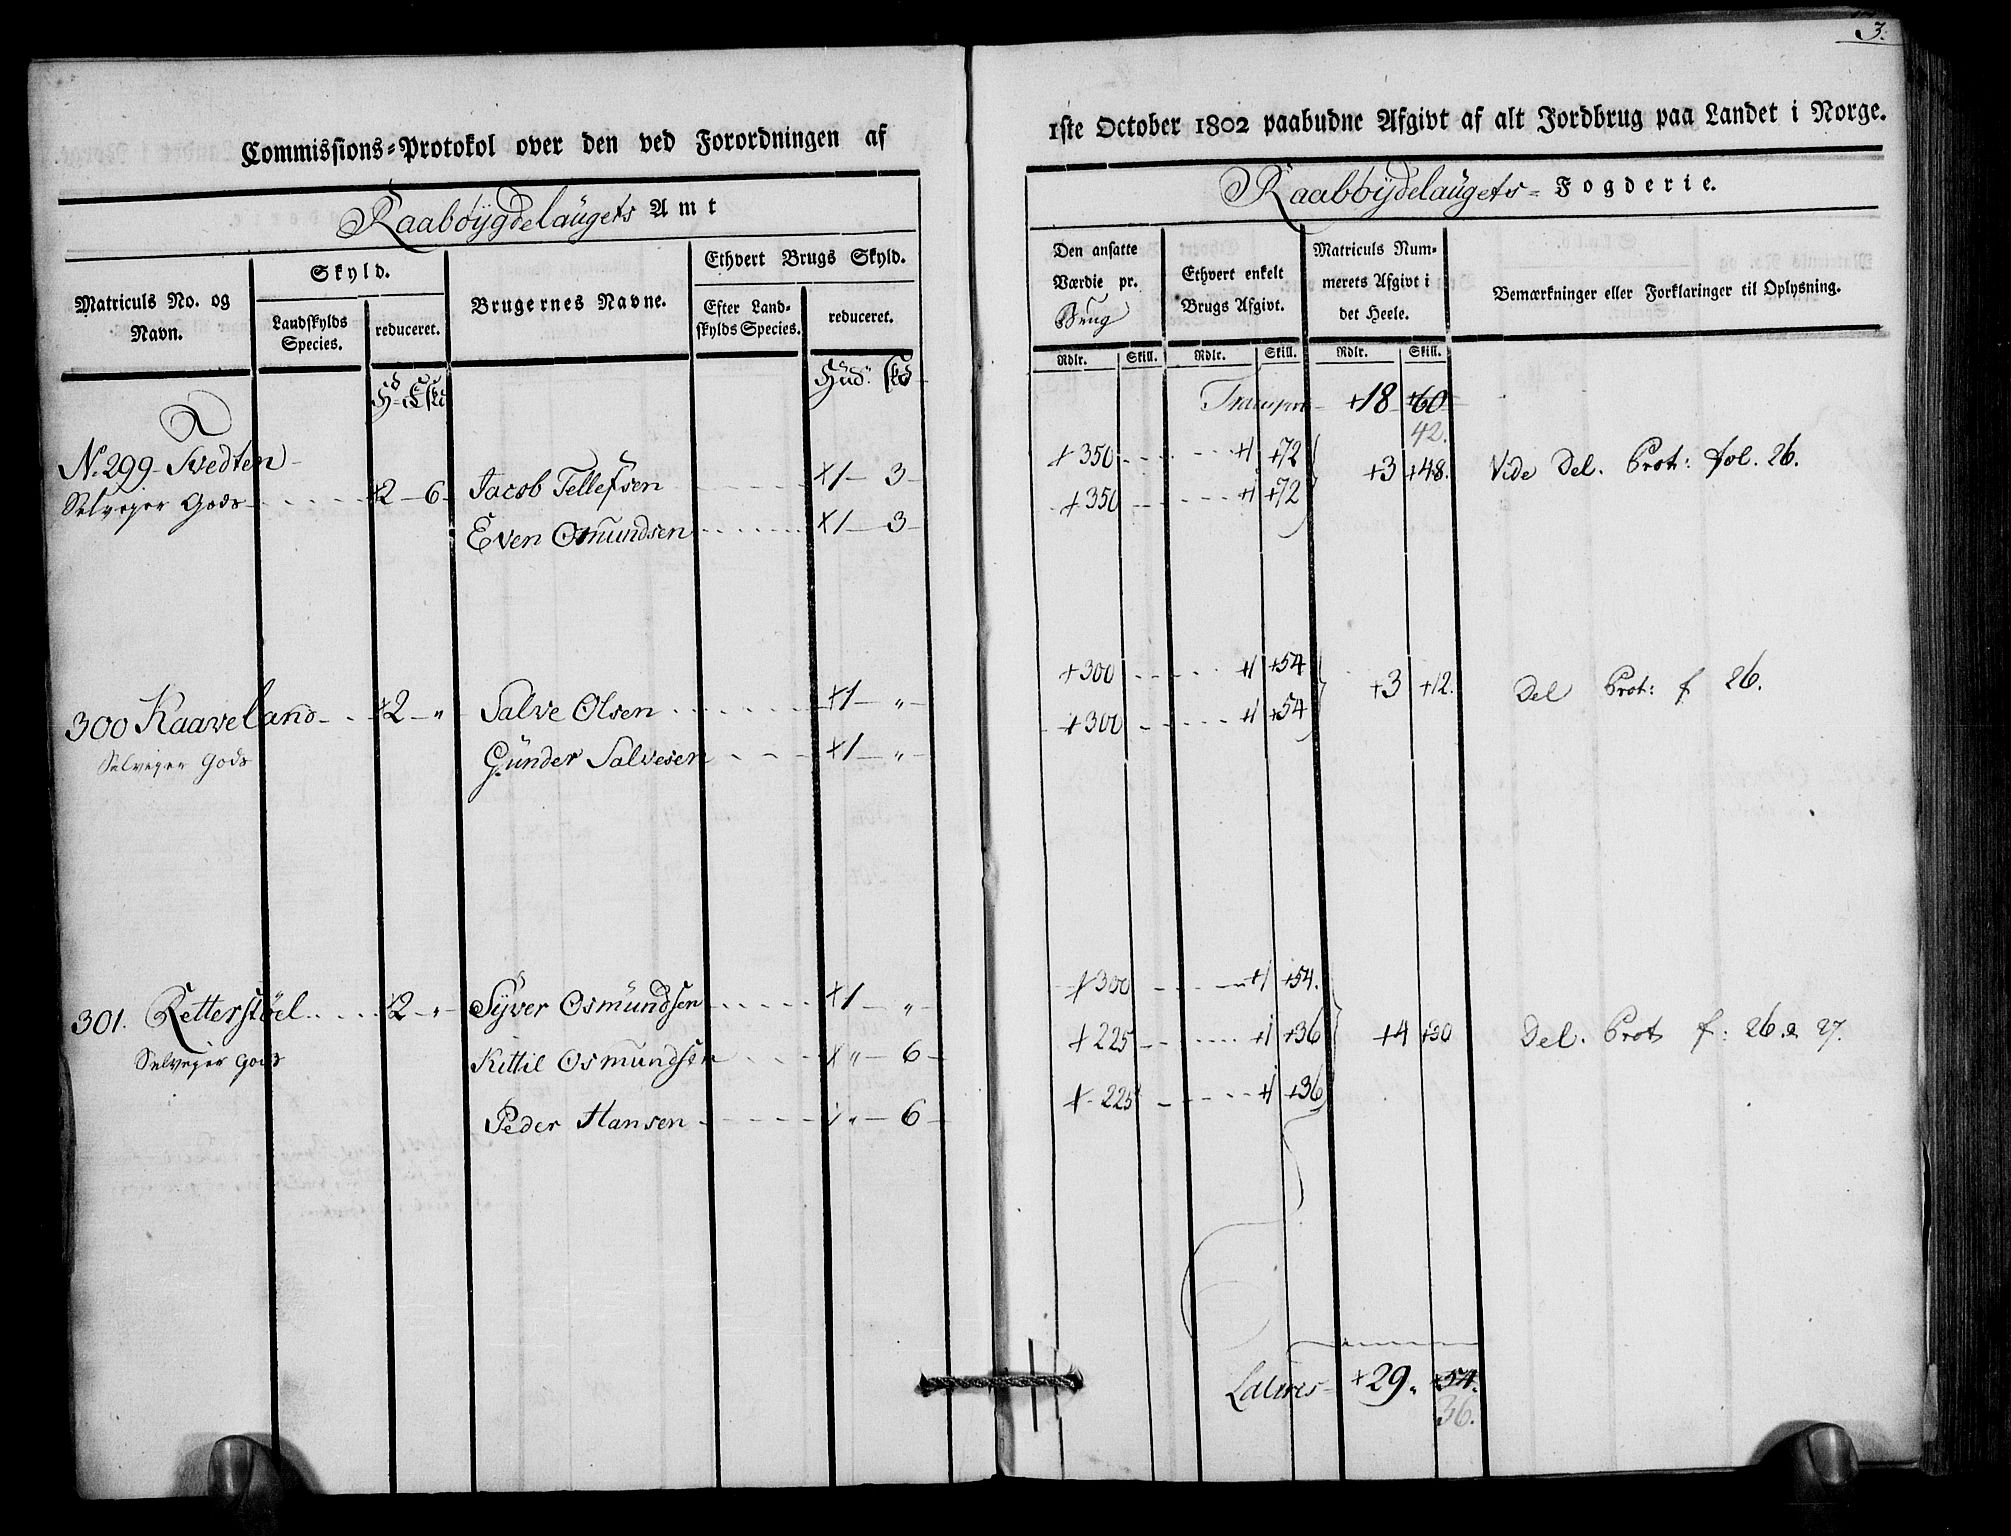 3.
Commissions-Protokol over den ved Forordningen af
Raabøÿgdelaugets Amt
Matriculs No. og Navn.
Skyld.
Landskylds Species.
reduceret.
Brugernes Navne.
Ethvert Brugs Skyld.
Efter Landskylds Species.
reduceret.
Hud.
No. 299 Tvedten
Selveger Gods +2 6 Jacob Tellefsen +1 3
Even Osmundsen +1 3
300 Kaaveland +2 " Salve Olsen +1 "
Selveger Gods Gunder Salvesen +1 "
301. Retterstøel +2 " Syver Osmundsen +1 "
Selveger Gods Kittil Osmundsen + " 6
Peder Hansen " 6
1ste October 1802 paabudne Afgivt af alt Jordbrug paa Landet i Norge.
Raabøÿdelaugets Fogderie.
Den ansatte Værdie pr. Brug
Ethvert enkelt Brugs Afgivt.
Matriculs Nummerets Afgivt i det Heele.
Bemærkninger eller Forklaringer til Oplysning.
Rdlr. Skill. Rdlr. Skill. Rdlr. Skill.
Transport +18 +60
42.
+350 +1 +72
+3 +48. Vide Del. Prot: fol. 26.
+350 +1 +72
+300 +1 +54
+3 +12. Del Prot: f 26.
+300 +1 +54
+300 +1 +54.
+225 +1 +36 +4 +30 Del. Prot f: 26. & 27.
+225 +1 +36
Lateres +29 " +54.
36.